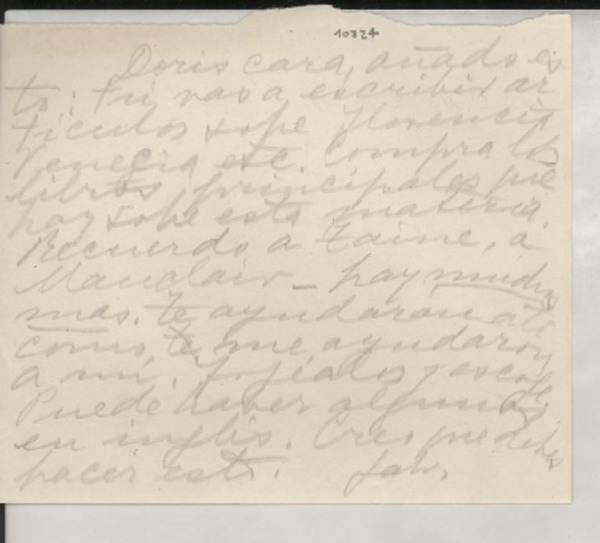 10324
Doris cara, añado es
to: Tu vas a escribir ar
tículos sobe Florencia
Venecia etc. Compra los
libros principales que
hay sobe esta materia.
Recuerdo a Taine, a
Mauclair — hay muchos
mas. Te ayudaran a ti
como me ayudaron
a mi. Ojealos y escoje.
Puede haber algunos
en inglis. Creo que debes
hacer esto. Gab.